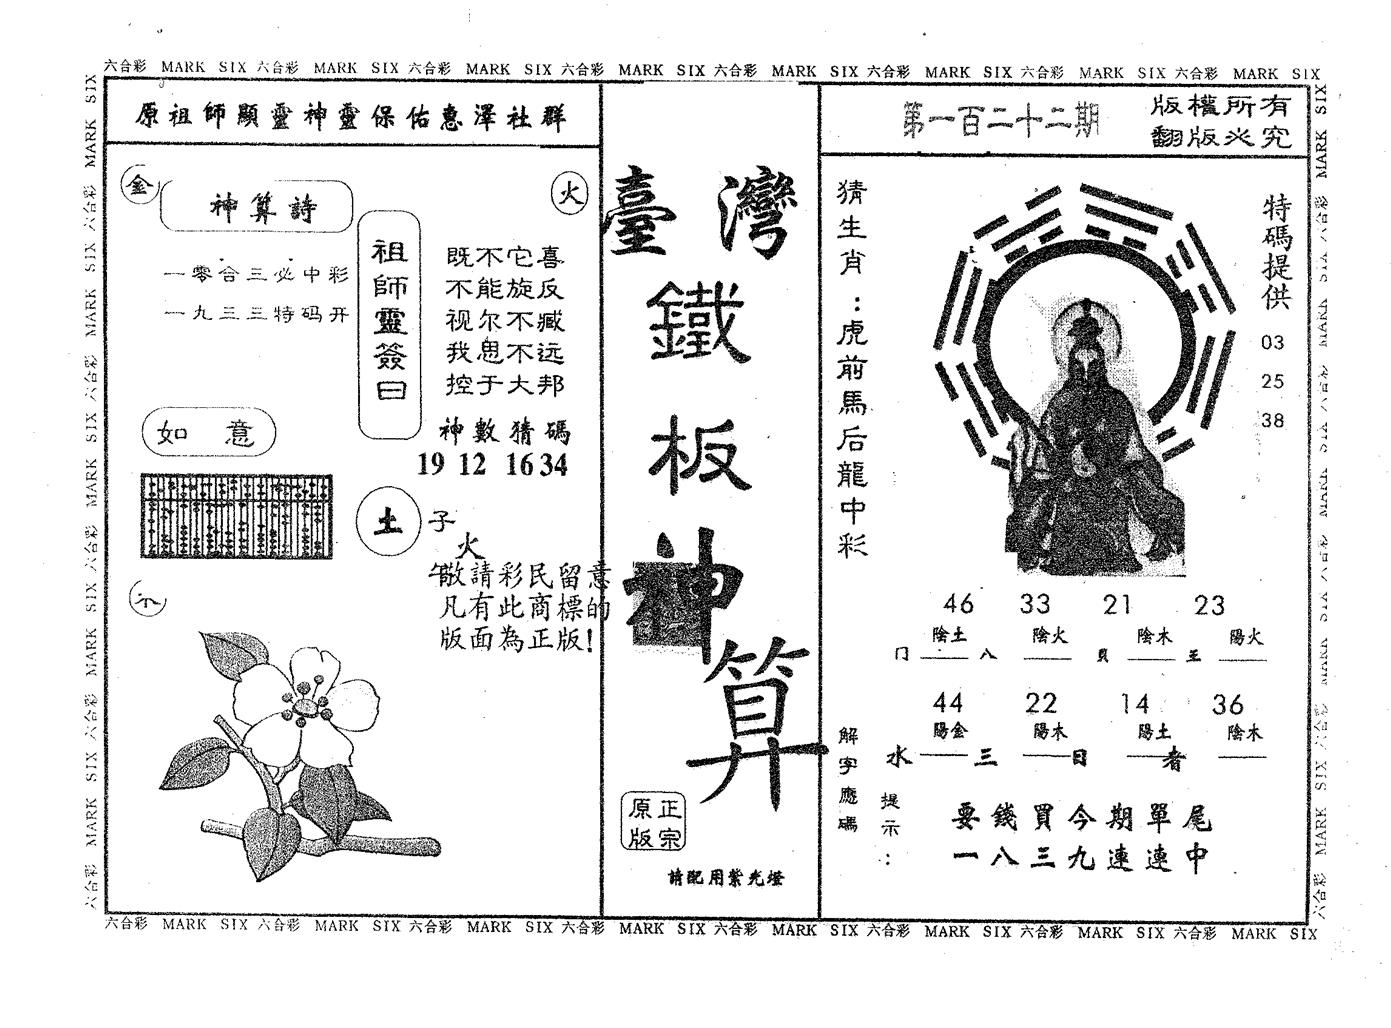 六合彩 MARK SIX 六合彩 MARK SIX 六合彩 MARK SIX 六合彩 MARK SIX 六合彩 MARK SIX 六合彩 MARK SIX 六合彩 MARK SIX 六合彩 MARK SIX
原祖師顯靈神靈保佑惠澤社群
金
神算詩
火
一零合三必中彩
一九三三特码开
祖師靈簽曰
既不它喜
不能旋反
视尔不臧
我思不远
控于大邦
神數猜碼
19 12 16 34
如意
土
子
火
午敬請彩民留意
凡有此商標的
版面為正版!
臺灣
鐵
板
神
算
原正
版宗
請配用紫光燈
第一百二十二期
版權所有
翻版必究
猜生肖:虎前馬后龍中彩
特碼提供
03
25
38
46 33 21 23
陰土 陰火 陰木 陽火
门 八 貝 王
44 22 14 36
陽金 陽木 陽土 陰木
水 三 日 者
解字應碼
提示:
要錢買今期單尾
一八三九連連中
六合彩 MARK SIX 六合彩 MARK SIX 六合彩 MARK SIX 六合彩 MARK SIX 六合彩 MARK SIX 六合彩 MARK SIX 六合彩 MARK SIX 六合彩 MARK SIX